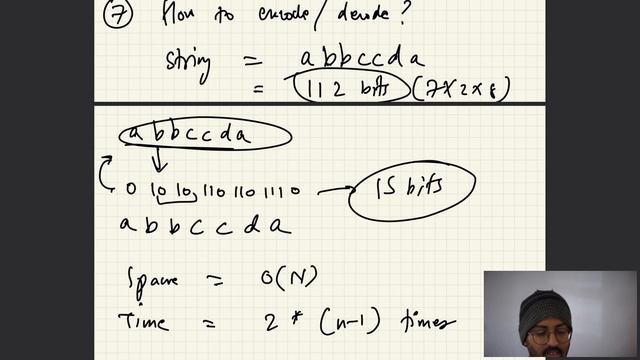 7 How to encode/decode?
string = abbccda
= 112 bits (7x2x8)
abbccda
0 10 10 110 110 111 0 → 15 bits
a b b c c d a
Space = O(N)
Time = 2 * (n-1) times